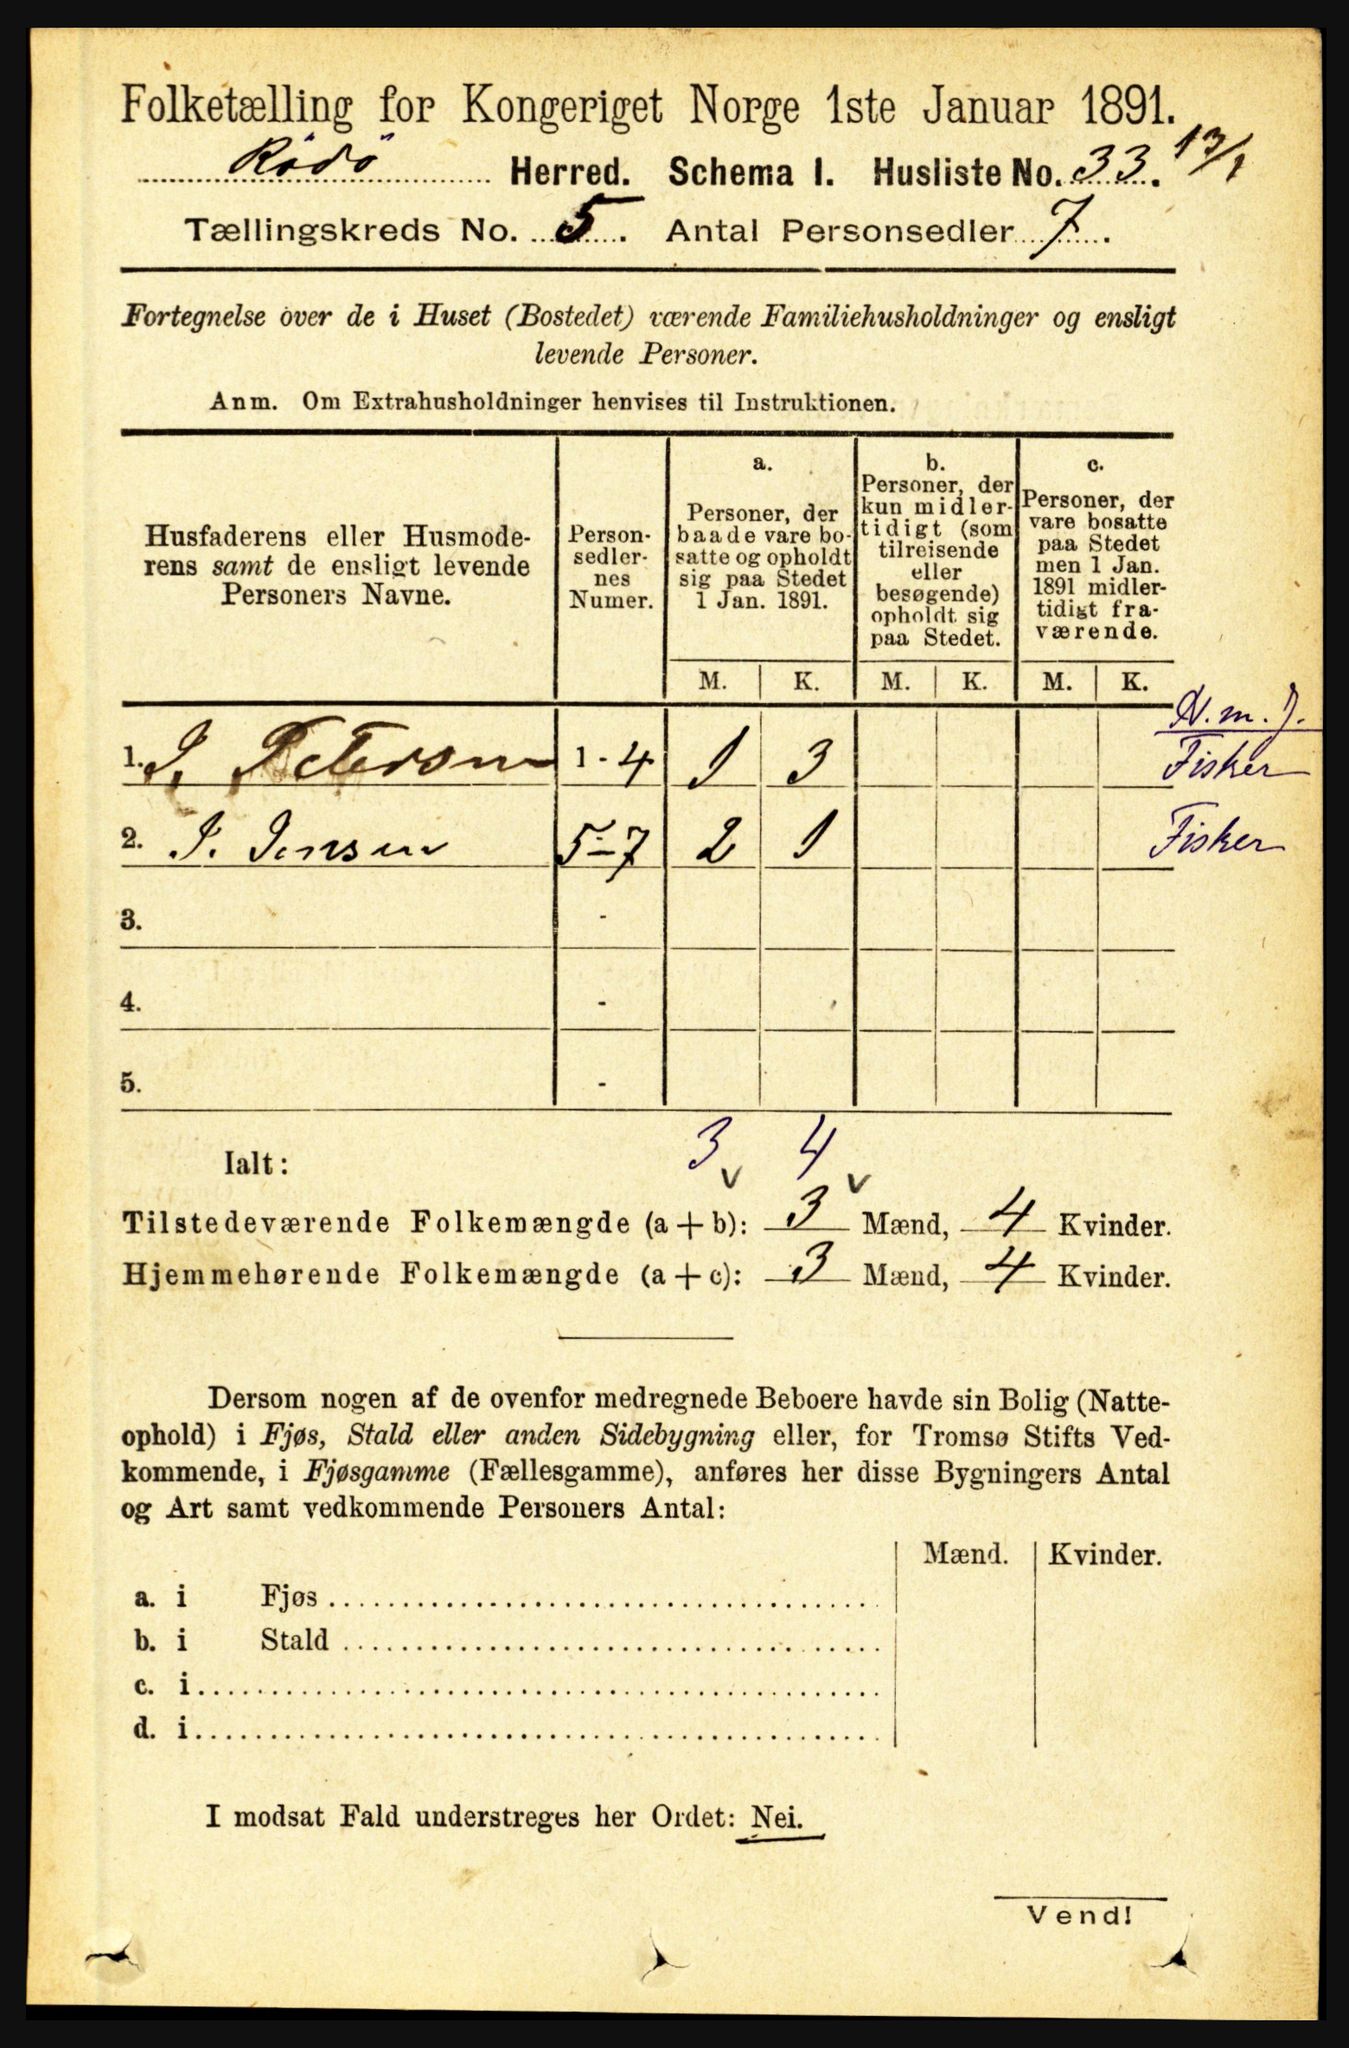 Folketælling for Kongeriget Norge 1ste Januar 1891.
Rödö Herred. Schema I. Husliste No. 33. 13/1
Tællingskreds No. 5. Antal Personsedler 7.
Fortegnelse over de i Huset (Bostedet) værende Familiehusholdninger og ensligt
levende Personer.
Anm. Om Extrahusholdninger henvises til Instruktionen.
Husfaderens eller Husmode-
rens samt de ensligt levende
Personers Navne.
Person-
sedler-
nes
Numer.
a.
Personer, der
baade vare bo-
satte og opholdt
sig paa Stedet
1 Jan. 1891.
b.
Personer, der
kun midler-
tidigt (som
tilreisende
eller
besøgende)
opholdt sig
paa Stedet.
c.
Personer, der
vare bosatte
paa Stedet
men 1 Jan.
1891 midler-
tidigt fra-
værende.
M. K. M. K. M. K.
N.m.J.
1. J. Petersen 1-4 1 3 Fisker
2. J. Jensen 5-7 2 1 Fisker
3. -
4. -
5. -
Ialt: 3 4
v v
Tilstedeværende Folkemængde (a + b): 3 Mænd, 4 Kvinder.
Hjemmehørende Folkemængde (a + c): 3 Mænd, 4 Kvinder.
Dersom nogen af de ovenfor medregnede Beboere havde sin Bolig (Natte-
ophold) i Fjøs, Stald eller anden Sidebygning eller, for Tromsø Stifts Ved-
kommende, i Fjøsgamme (Fællesgamme), anføres her disse Bygningers Antal
og Art samt vedkommende Personers Antal:
Mænd. Kvinder.
a. i Fjøs
b. i Stald
c. i
d. i
I modsat Fald understreges her Ordet: Nei.
Vend!